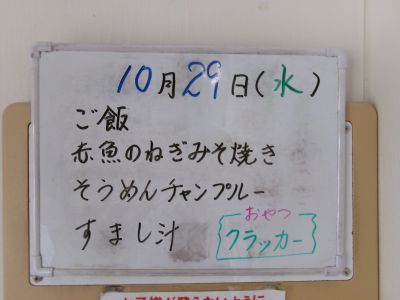 10月29日(水)
ご飯
赤魚のねぎみそ焼き
そうめんチャンプルー
すまし汁
おやつ
クラッカー